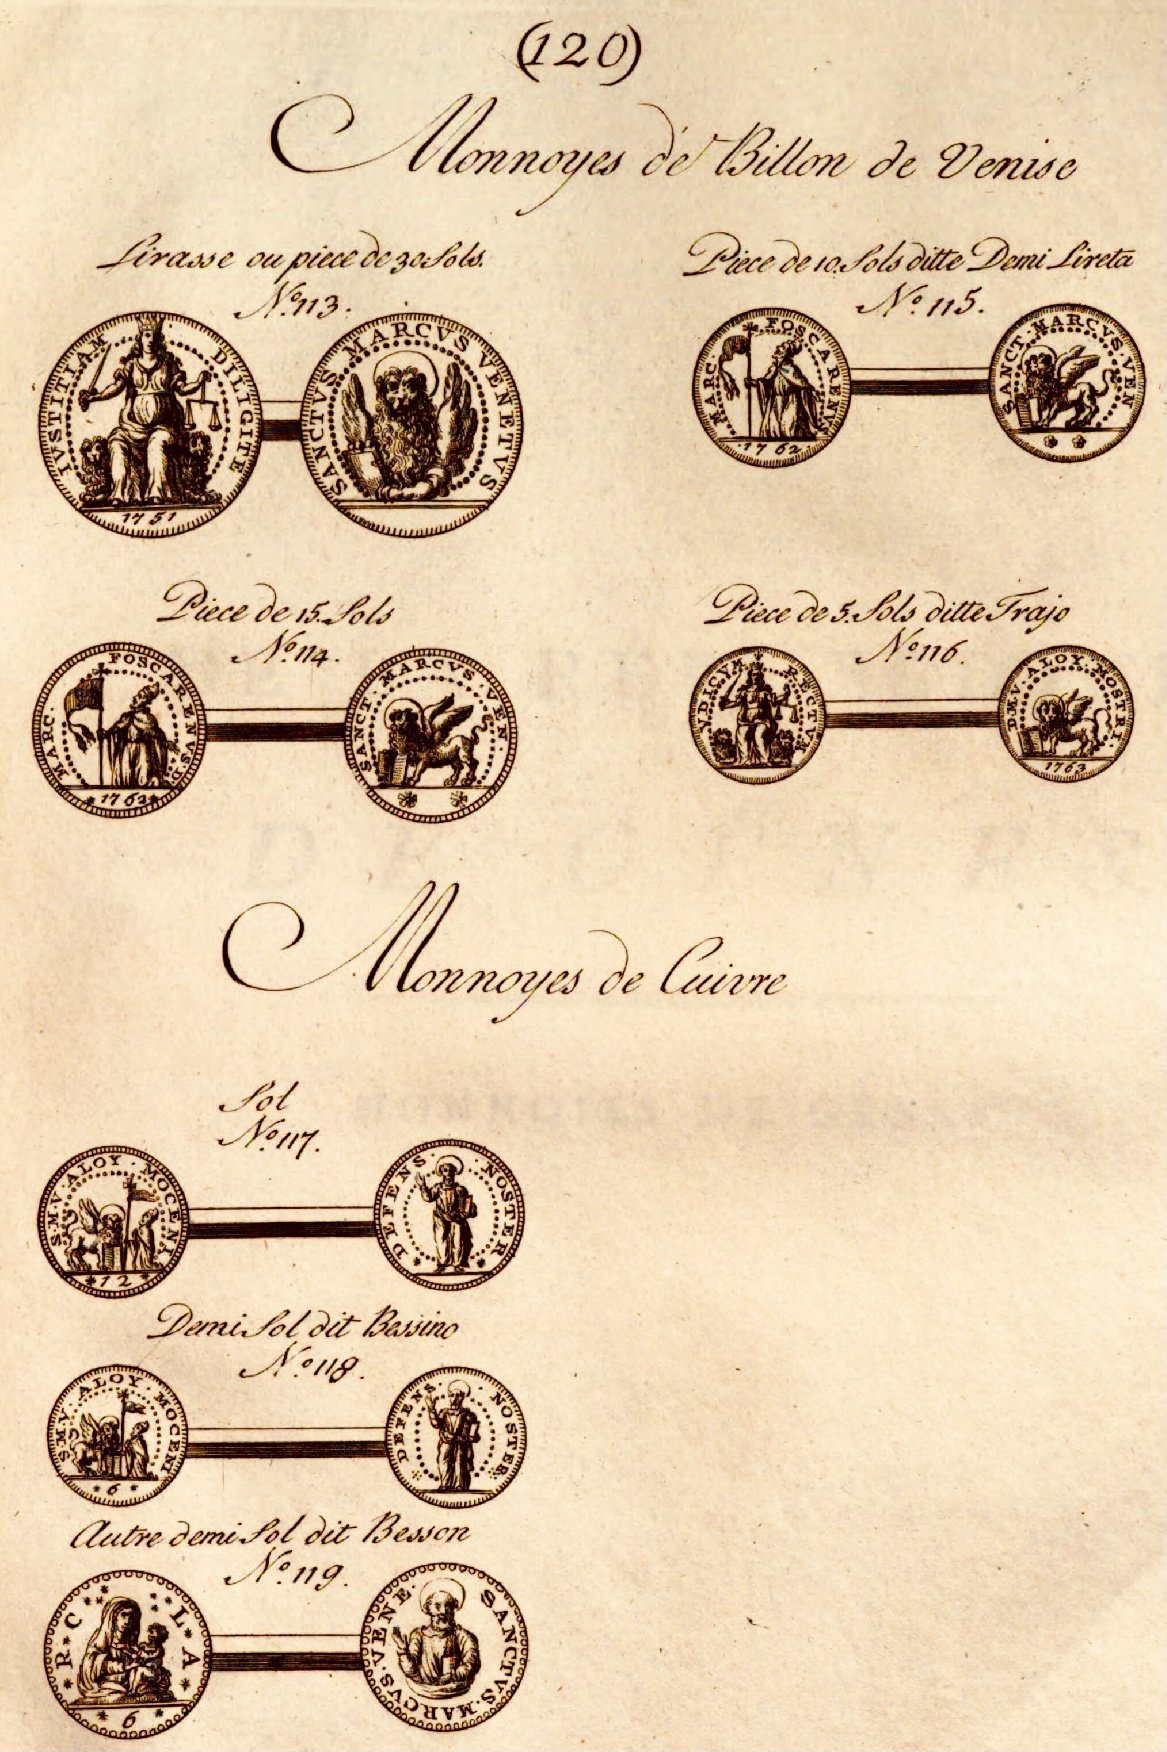 (120)
Monnoyes de Billon de Venise
Lirasse ou piece de 30 Sols.
N.º 113.
IVSTITIAM DILIGITE
1751
SANCTVS MARCVS VENETVS
Piece de 10. Sols ditte Demi Lireta
N.º 115.
MARC. FOSCARENVS
1762
SANCT. MARCVS. VEN
Piece de 15. Sols
N.º 114.
MARC. FOSCARENVS. D.
*1762*
SANCT. MARCVS. VEN.
Piece de 5. Sols ditte Trajo
N.º 116.
IVDICIVM RECTVM
D.M.V. ALOY. MOSTRI.
1763
Monnoyes de Cuivre
Sol
N.º 117.
S.M.V. ALOY. MOCENI
*12*
*DEFENS. NOSTER*
Demi Sol dit Bessino
N.º 118.
S.M.V. ALOY. MOCENI
*6*
*DEFENS. NOSTER*
Autre demi Sol dit Besson
N.º 119.
*R*C* *L*A*
*6*
SANCTVS. MARCVS. VENE.